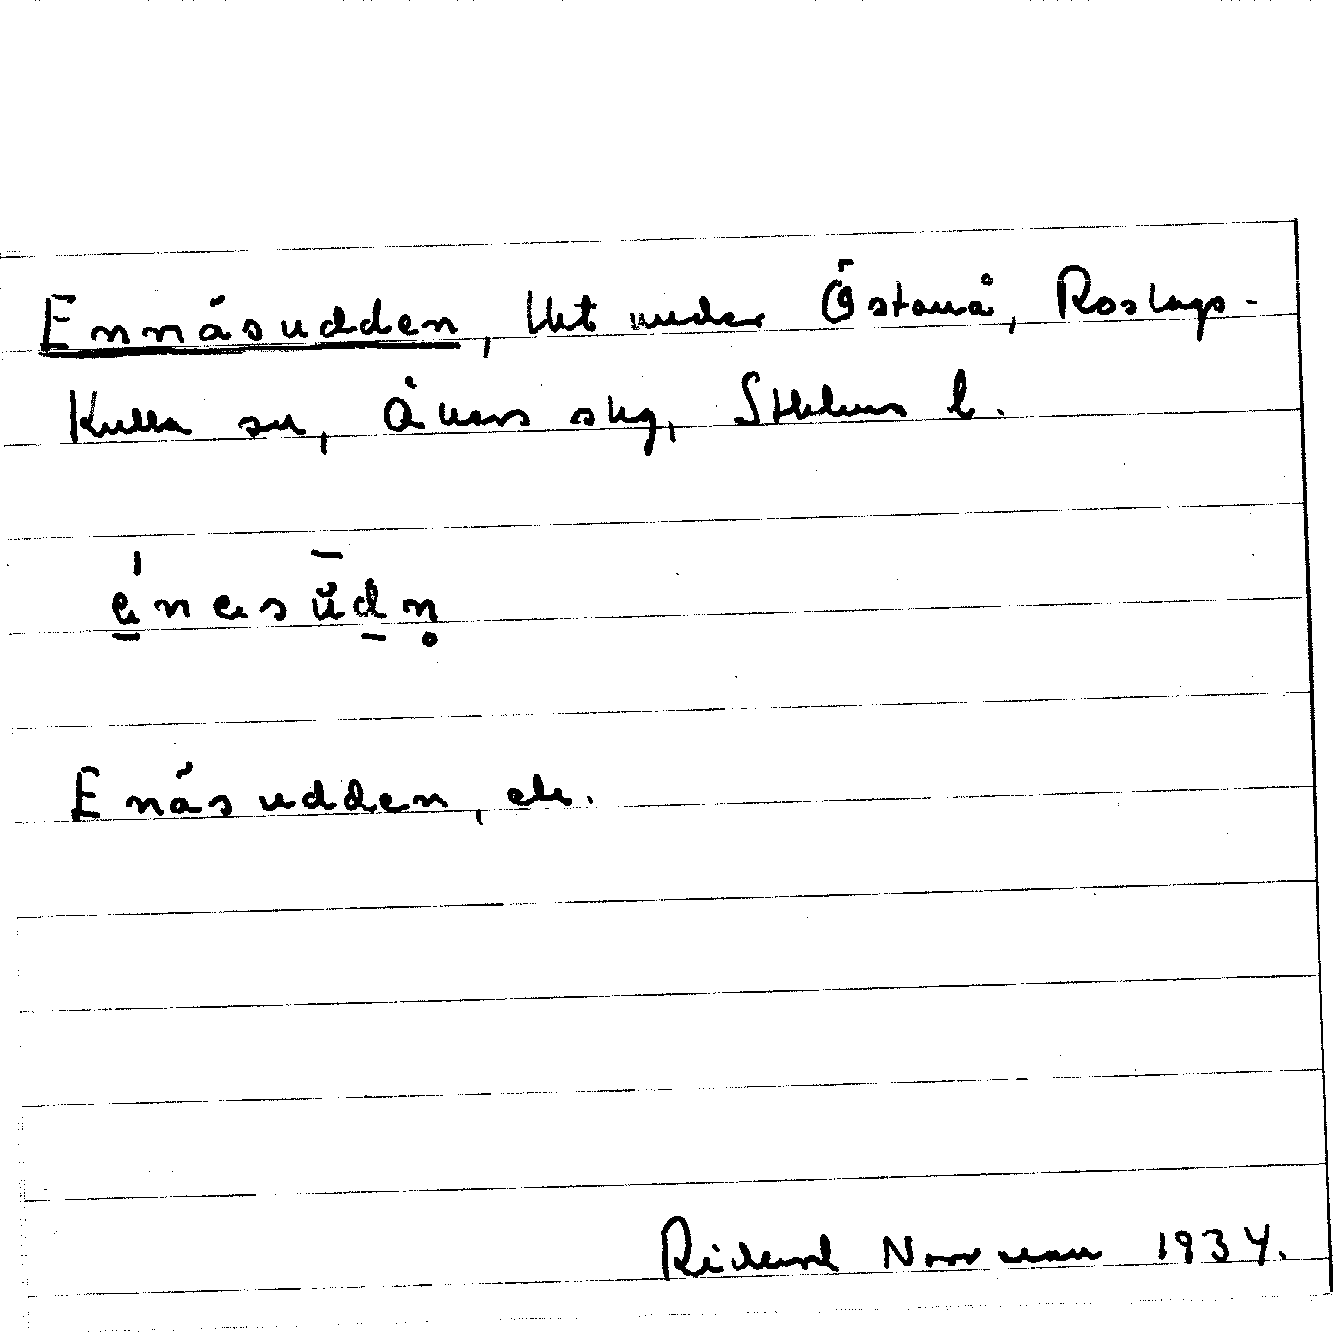 Ennäsudden, lht under Östanå, Roslags-
Kulla sn, Åkers skg, Sthlms l.
Enäsudden, ek.
Richard Norrman 1934.